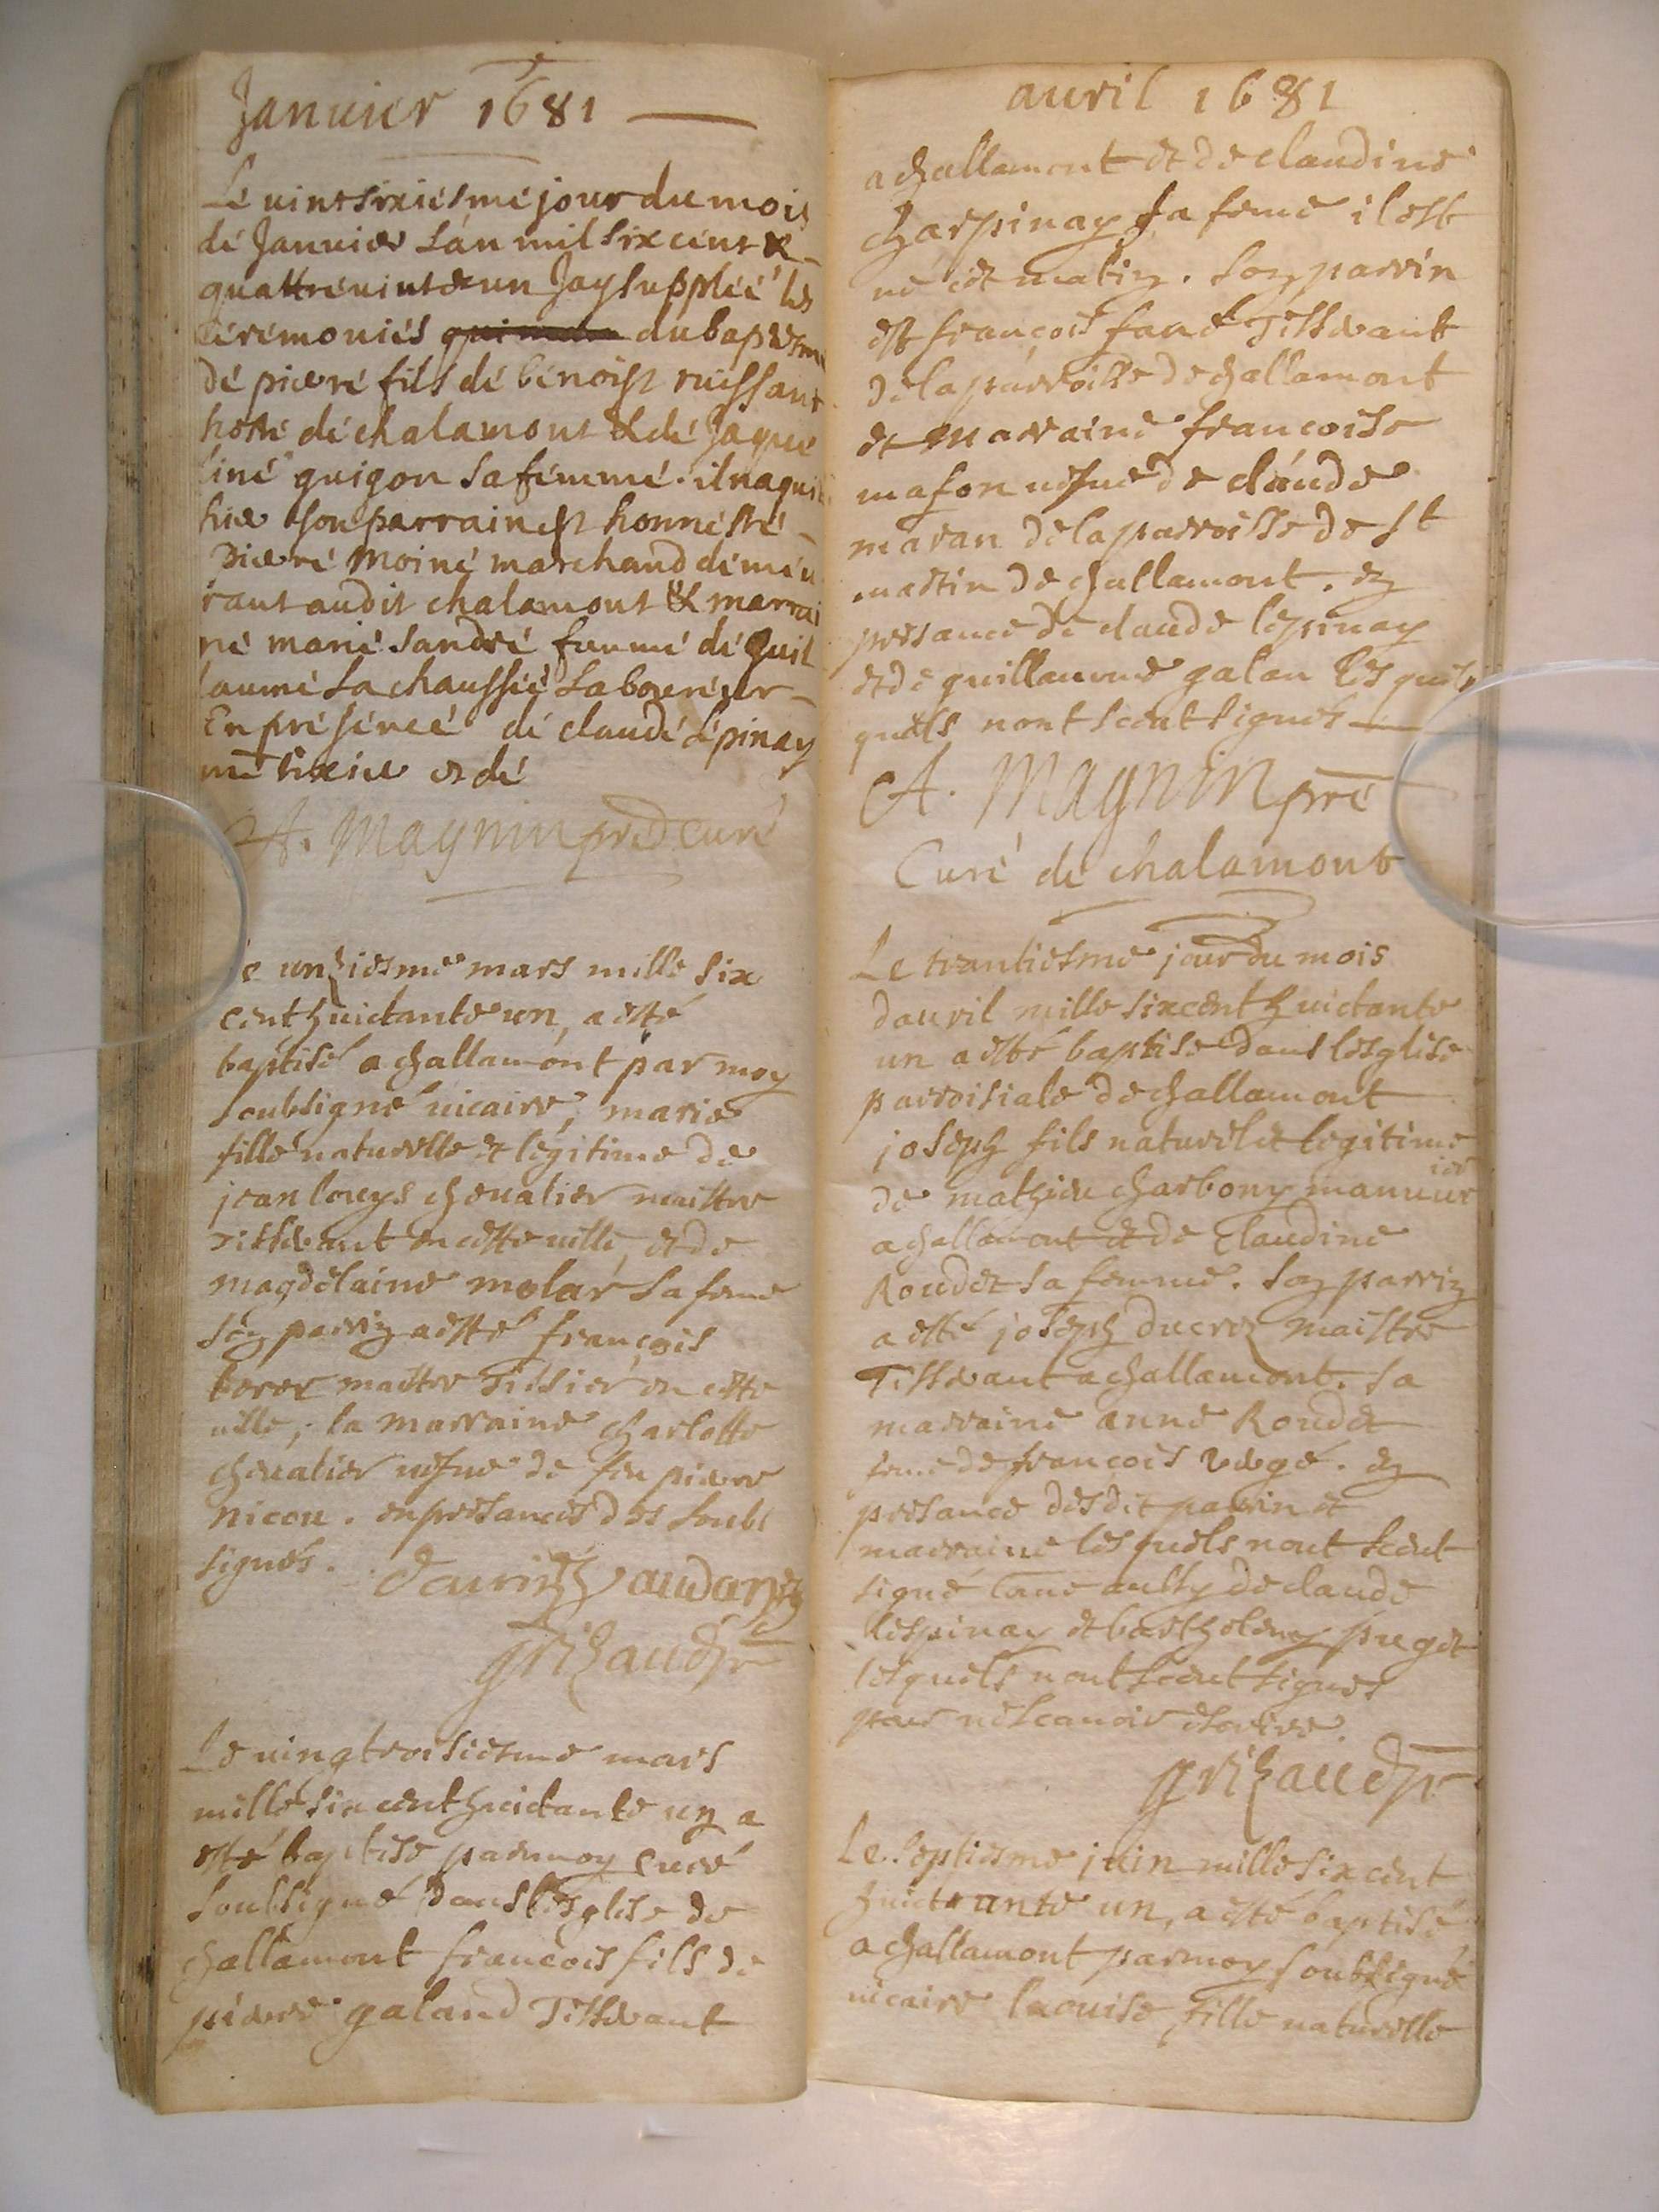 Januier 1681
Le vintsixiésmé jour du mois
dé Januier Lán mil six cént &
quattrévint & un Jay suppléé lés
cérémoniés du baptesme
dé pierré fils dé bénoist ruissant
hosté dé chalamont & dé Jaque
liné guigon sa fémmé. il naquit
hier son parrain est honnésté
Pierré Moiné marchand démeu
rant audit chalamont & marrai
né marié sandré fammé dé Guil
laumé La chaussée Laboureur
En présencé dé claudé Lépinay
et dé
A. Magnin curé
Le unziesme mars mille six
cent huictante un, a esté
baptisé a challamont par moy
soubsigné vicaire, marie
fille naturelle et legitime de
jean louys cheualier maistre
tisserant en cette ville, et de
magdelaine molar sa feme
son parrin a esté françois
maitre Tissier en cette
ville; la marraine charlotte
cheualier vefue de feu pierre
nicou. en presances des soubs
signés.
grizaud pr
Le vingtroisiesme mars
mille six cent huictante un a
esté baptise par moy curé
soubsigné dans l'esglise de
challamont francois fils de
pierre galand Tisserant
auril 1681
a challamont et de claudine
charpinay sa feme il est
né cet matin. son parrin
est françois fané Tisserant
de la parroisse de challamont
et marraine francoise
mason vefue de claude
maran de la parroisse de St
martin de challamont. en
presance de claude lepinay
et de guillaume galan les quels
quels nont sceut signés
A. Magnin pre
Curé de chalamont
Le trantiesme jour du mois
dauril mille six cent huictante
un a esté baptise dans lesglise
parroisiale de challamont
joseph fils naturel et legitime
de mathieu charbony
a challamont et de Claudine
Roudet sa femme. son parrin
a esté joseph ducroz maistre
Tisserant a challamont. sa
marraine anne Roudet
feme de francois vergé. en
presance desdit parrin et
marraine lesquels nont sceut
signé come aussy de claude
lespinay et bartholemy puget
lesquels nont sceut signes
pour ne scauoir escrire.
grizaud pr
Le septiesme juin mille six cent
huictrante un, a esté baptisé
a challamont par moy soubsigné
vicaire laouise fille naturelle